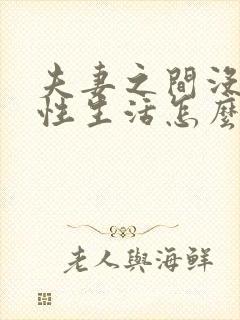 夫妻之間沒
性生活怎麼
老人與海鮮